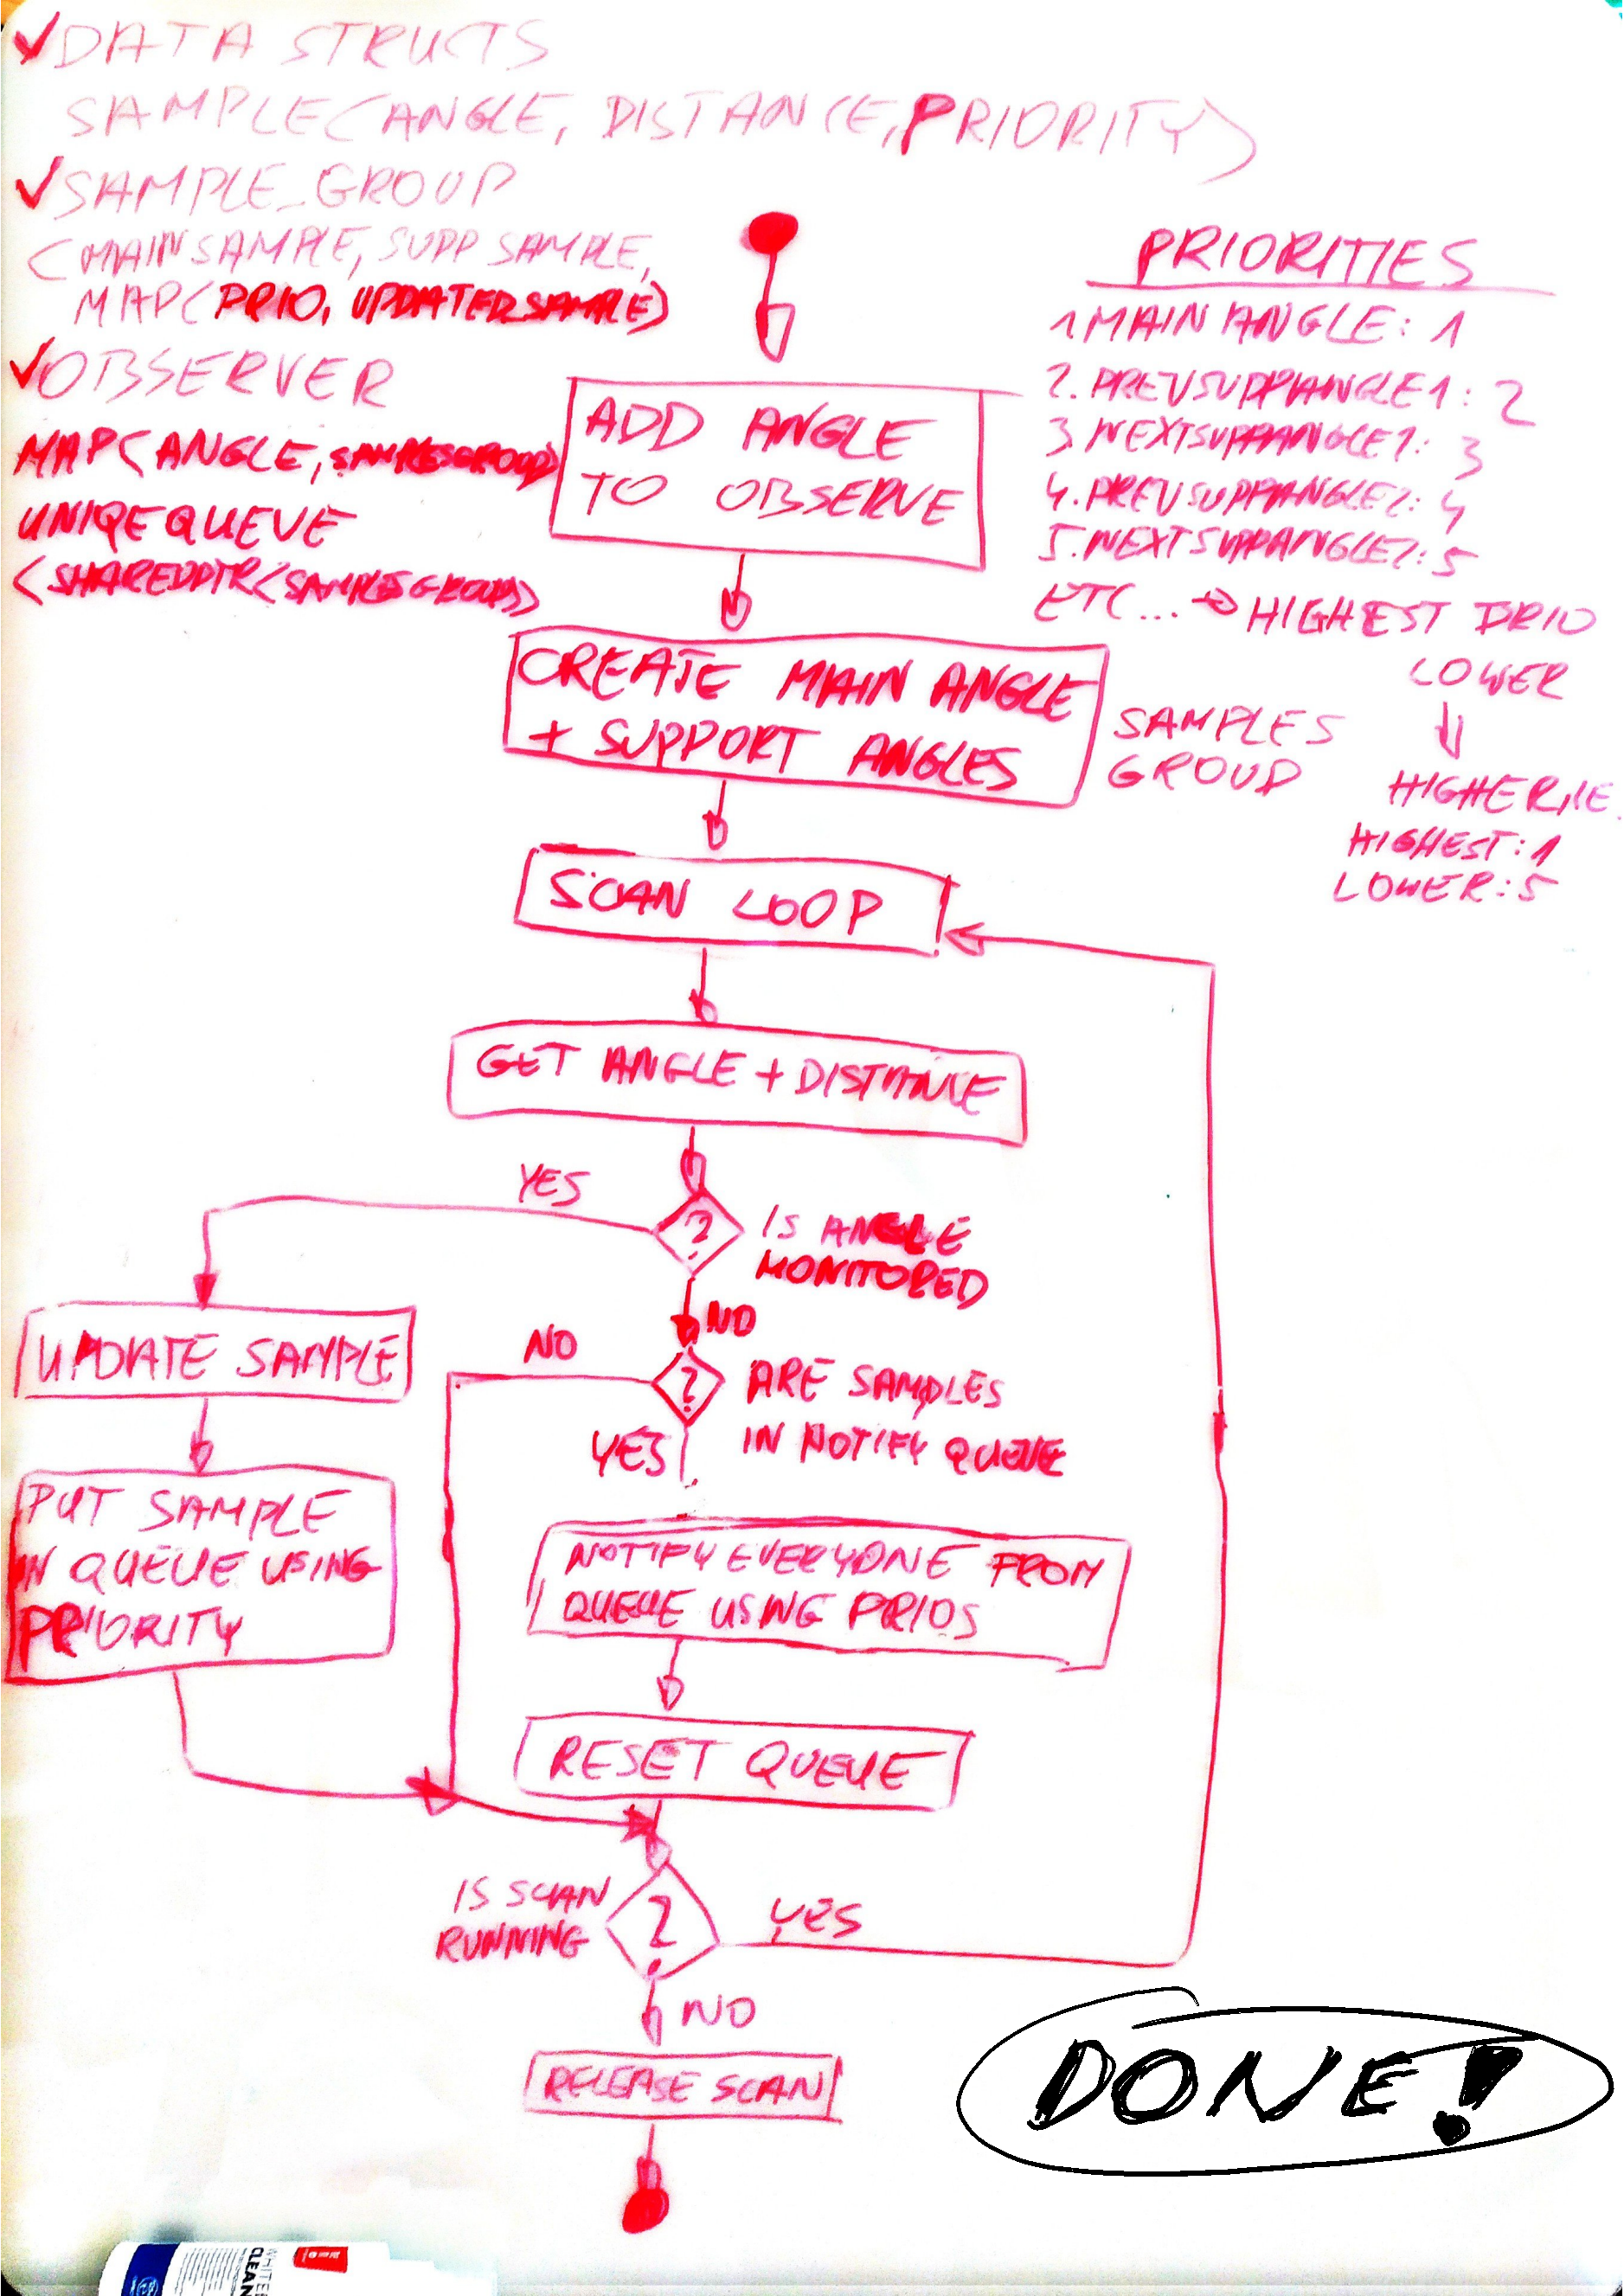 ✓DATA STRUCTS
SAMPLE(ANGLE, DISTANCE, PRIORITY)
✓SAMPLE_GROUP
(MAINSAMPLE, SUPPSAMPLE,
MAP(PRIO, UPDATEDSAMPLE)
✓OBSERVER
MAP(ANGLE, SAMPLESGROUP)
UNIQEQUEUE
(SHAREDPTR(SAMPLESGROUP))
PRIORITIES
1 MAIN ANGLE: 1
2. PREVSUPPANGLE1: 2
3 NEXTSUPPANGLE1: 3
4. PREVSUPPANGLE2: 4
5. NEXTSUPPANGLE2: 5
ETC... → HIGHEST PRIO
LOWER
HIGHER, IE.
HIGHEST: 1
LOWER: 5
ADD ANGLE
TO OBSERVE
CREATE MAIN ANGLE
+ SUPPORT ANGLES
SAMPLES
GROUP
SCAN LOOP
GET ANGLE + DISTANCE
YES
?
IS ANGLE
MONITORED
NO
UPDATE SAMPLE
NO
?
ARE SAMPLES
IN NOTIFY QUEUE
YES
PUT SAMPLE
IN QUEUE USING
PRIORITY
NOTIFY EVERYONE FROM
QUEUE USING PRIOS
RESET QUEUE
IS SCAN
RUNNING
?
YES
NO
RELEASE SCAN
DONE!